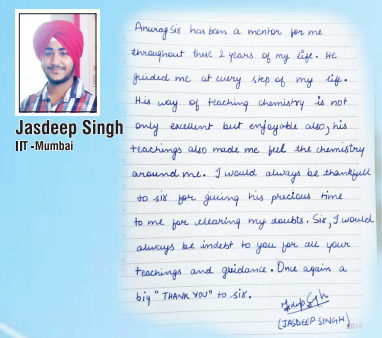 Jasdeep Singh
IIT -Mumbai
Anurag Sir has been a mentor for me
throughout these 2 years of my life. He
guided me at every step of my life.
His way of teaching chemistry is not
only excellent but enjoyable also, his
teachings also made me feel the chemistry
around me. I would always be thankfull
to sir for giving his precious time
to me for clearing my doubts. Sir, I would
always be indebt to you for all your
teachings and guidance. Once again a
big "THANK YOU" to sir.
(JASDEEP SINGH)